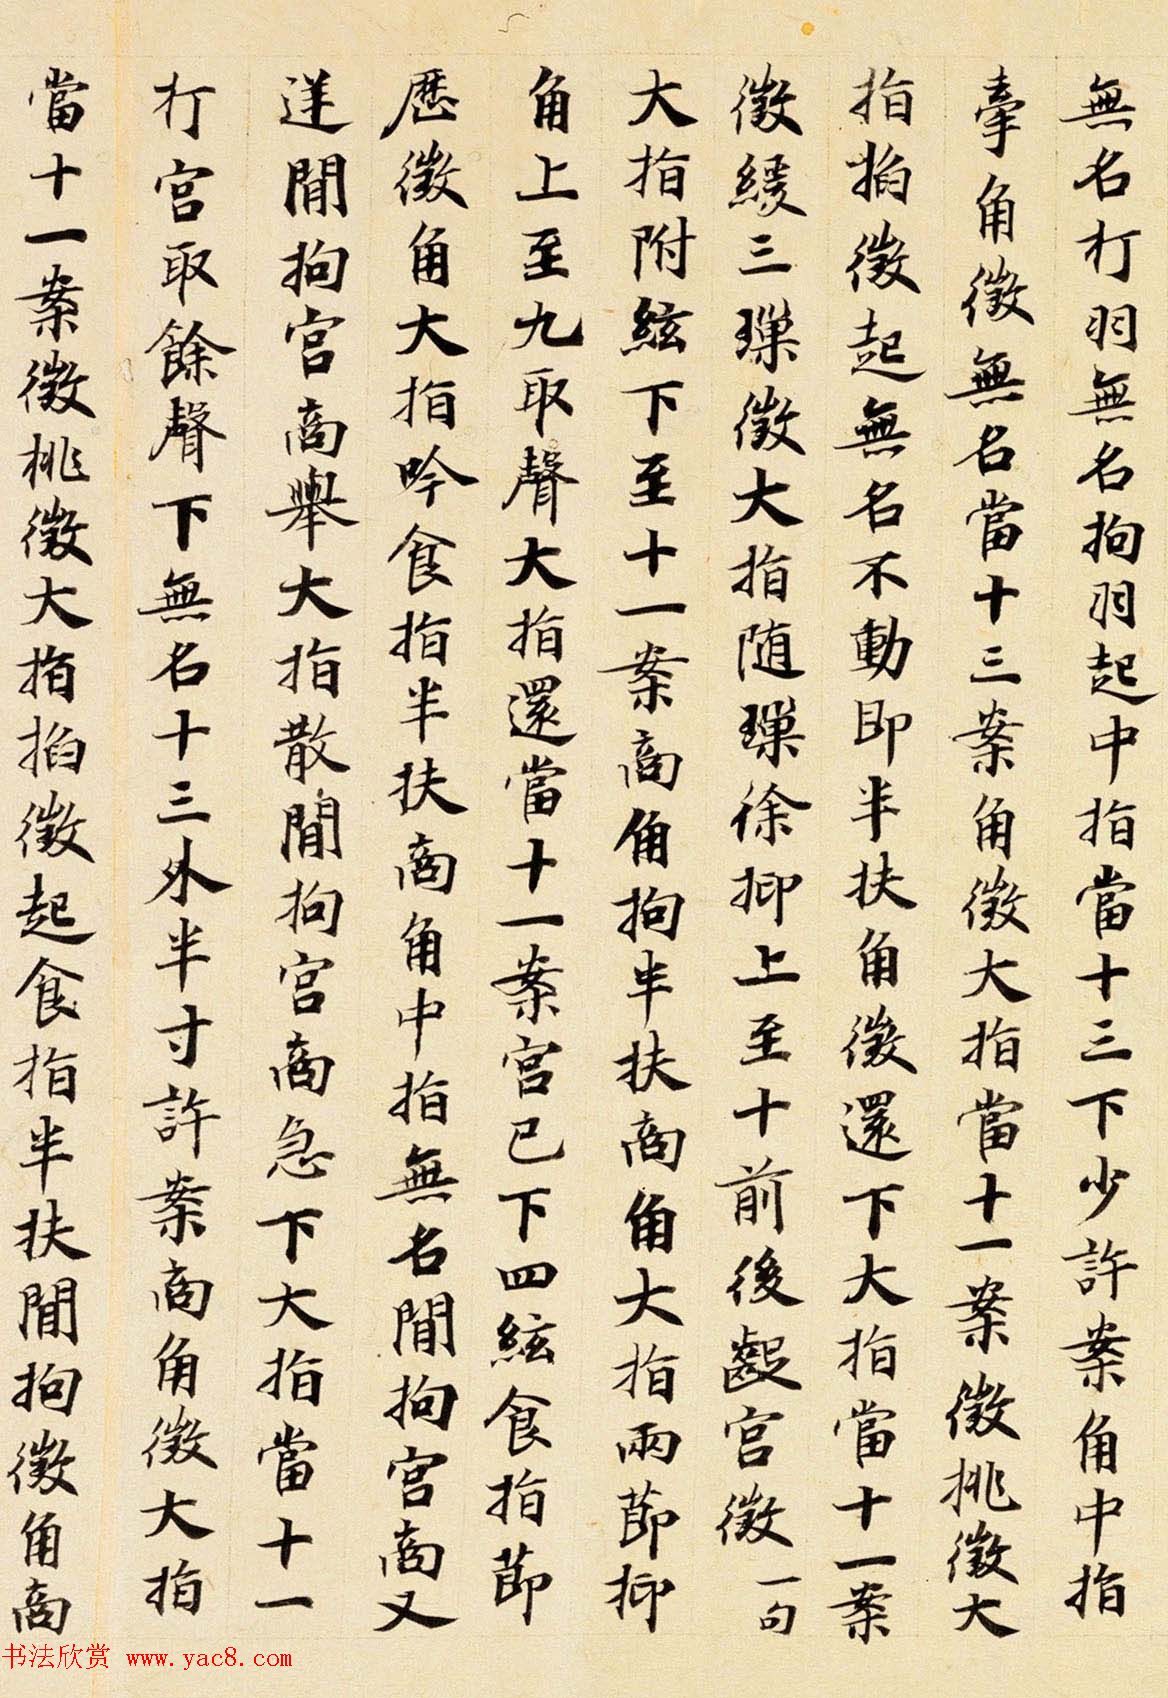 無名打羽無名拘羽起中指當十三下少許案角中指
牽角徵無名當十三案角徵大指當十一案徵挑徵大
指掐徵起無名不動即半扶角徵還下大指當十一案
徵緩三璅徵大指随璅徐抑上至十前後齪宮徵一句
大指附絃下至十一案商角拘半扶商角大指兩節抑
角上至九取聲大指還當十一案宮已下四絃食指節
歷徵角大指吟食指半扶商角中指無名間拘宮商又
送間拘宮商舉大指散間拘宮商急下大指當十一
打宮取餘聲下無名十三外半寸許案商角徵大指
當十一案徵挑徵大指掐徵起食指半扶間拘徵角商
书法欣赏 www.yac8.com